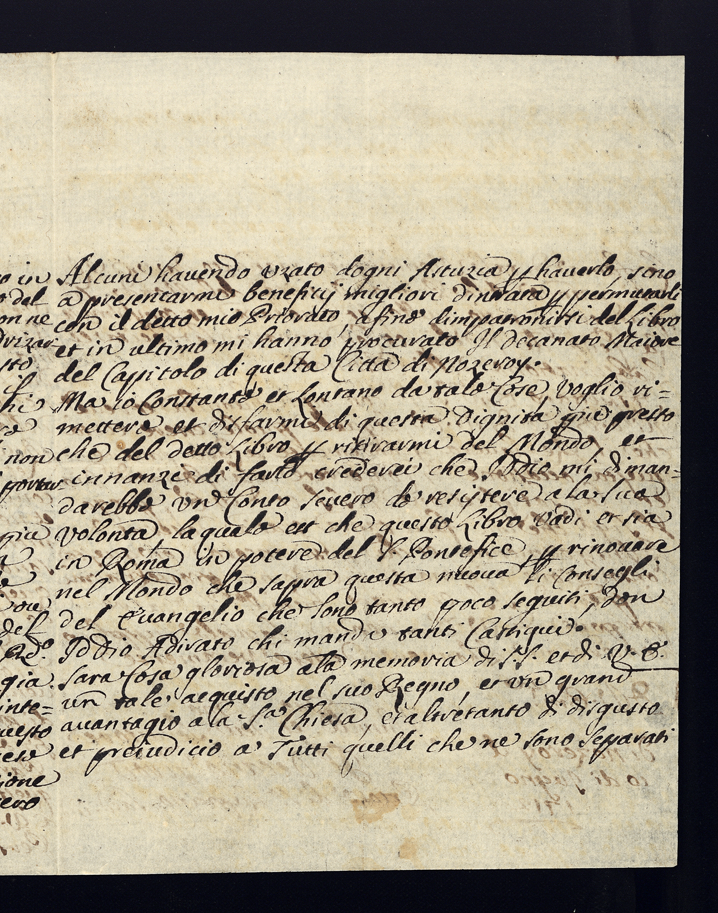 Alcuni havendo vzato dogni Asturia p haverlo, sino
a presentarmi beneficij migliori d'intrata p permutarli
con il detto mio Priorato, a fine d'impatronirsi del Libro
et in ultimo mi hanno procurato Il decanato Maiore
del Capitolo di questa Città di Nozeroy.
Ma io Constante et Lontano da tale Cose, voglio ri=
mettere et disfarmi di questa Dignita piu presto
che del detto Libro p ritirarmi del Mondo, et
innanze di farlo crederei che Iddio mi diman=
darebbe un Conto severo de resistere a la sua
volontà, la quale est che questo Libro vadi et sia
in Roma in potere del S. Pontefice, p rinovare
nel Mondo che sapra questa nuova li Consegli
del Evangelio che sono tanto poco seguiti, don
Iddio Adirato chi mande tanti Castiqui.
Sara Cosa gloriosa ala memoria di S.S. et di V. E.
un tale acquisto nel suo Regno, et un grand
avantagio a la S.ta Chiesa, et altretanto di disgusto
et preiudicio a Tutti quelli che ne sono Separati